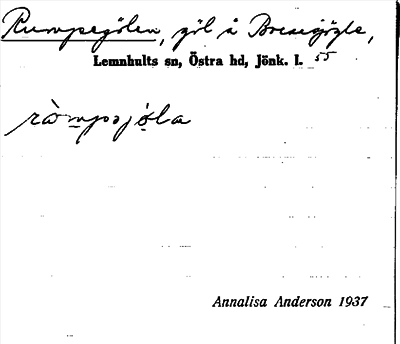 Rumpegölen, göl å Bresegögle,
Lemnhults sn, Östra hd, Jönk. l. 55
ràmpsjöla
Annalisa Anderson 1937